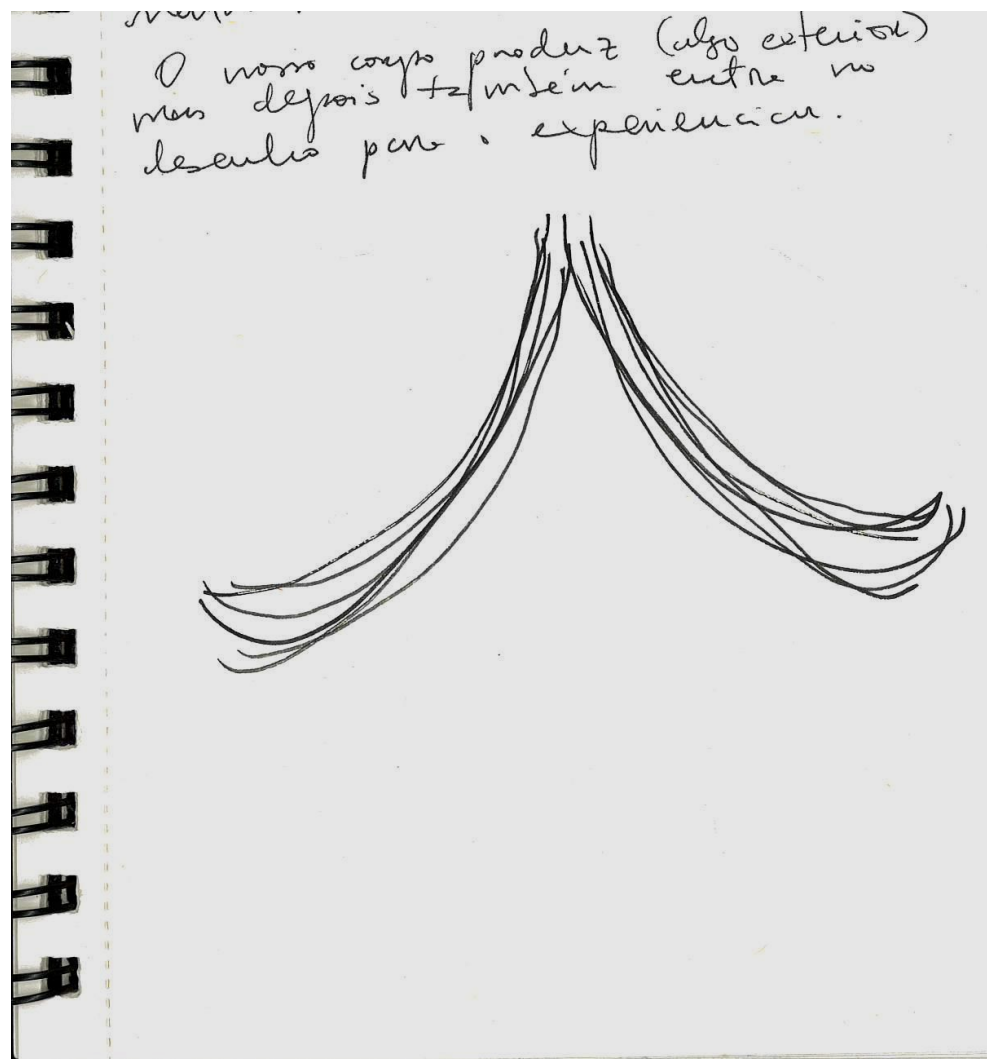 O nosso corpo produz (algo exterior)
mas depois também entra no
desenho para o experienciar.